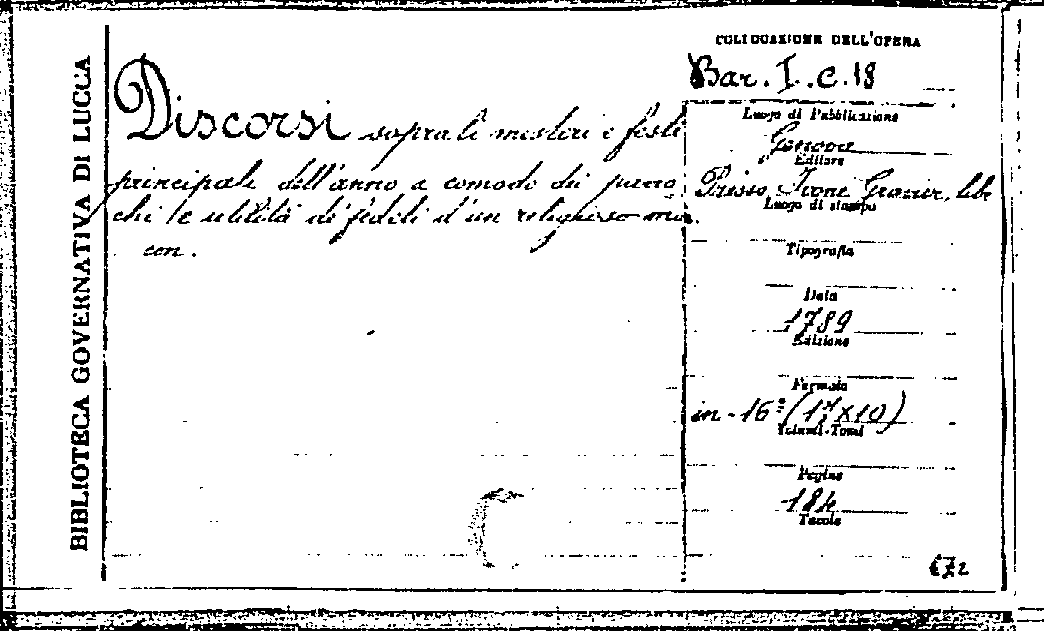 BIBLIOTECA GOVERNATIVA DI LUCCA
Discorsi sopra li misteri e feste
principali dell'anno a comodo dei parro
chi le utilità di fedeli d'un religioso min.
con.
COLLOCAZIONE DELL'OPERA
Bar. I. C. 18
Luogo di Pubblicazione
Genova
Editore
Presso, Ivone Gravier, libr
Luogo di stampa
Tipografia
Data
1789
Edizione
Formato
in-16° (17x10)
Volumi-Tomi
Pagine
184
Tavole